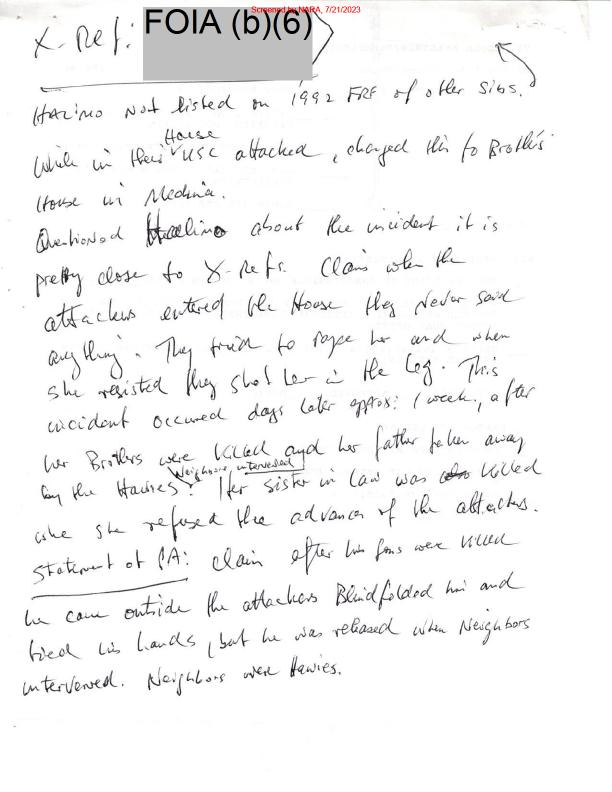 Screened by NARA, 7/21/2023
X-Ref: FOIA (b)(6)
Halimo not listed on 1992 FRF of other sibs.
House
While in their USC attacked, changed this to Brother's
House in Medina.
Questioned Halimo about the incident it is
pretty close to X-Refs. Claim when the
attackers entered the House they never said
anything. They tried to rape her and when
she resisted they shot her in the leg. This
incident occured days later approx: 1 week, after
her Brothers were killed and her father taken away
Neighbors intervened
by the Hawies. Her sister in law was killed
she refused the advances of the attackers.
Statement of PA: Claim after his sons were killed
he came outside the attackers Blindfolded him and
tied his hands, but he was released when Neighbors
intervened. Neighbors were Hawies.